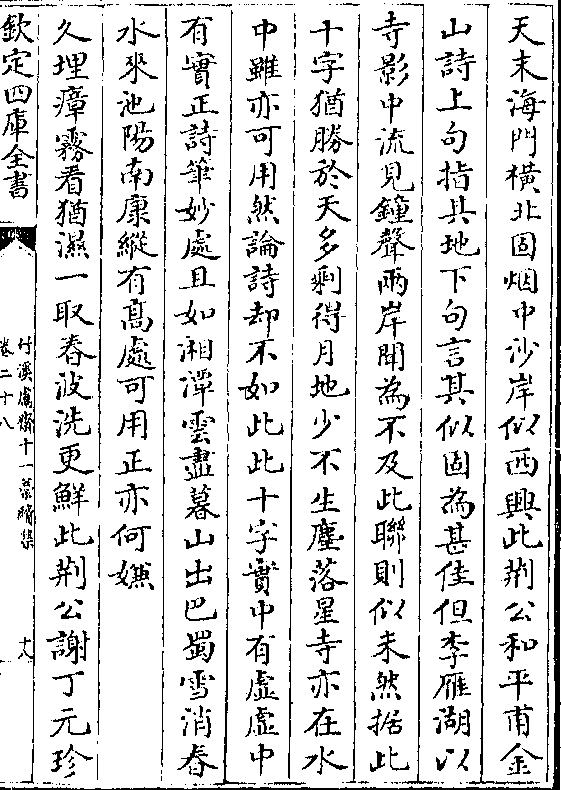 天末海門橫北固烟中沙岸似西興此荆公和平甫金
山詩上句指其地下句言其似固為甚佳但李雁湖以
寺影中流見鐘聲兩岸聞為不及此聯則似未然據此
十字猶勝於天多剩得月地少不生塵落星寺亦在水
中雖亦可用然論詩却不如此此十字實中有虚虚中
有實正詩筆妙處且如湘潭雲盡暮山出巴蜀雪消春
水來池陽南康縱有髙處可用正亦何嫌
久埋瘴霧看猶濕一取春波洗更鮮此荆公謝丁元珍
欽定四庫全書
竹溪鬳齋十一藁續集
卷二十八
十八